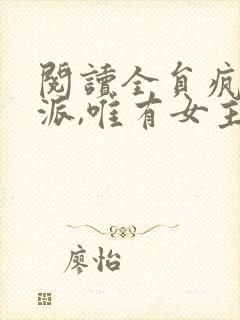 閱讀全員瘋
派,唯有女主
廖怡